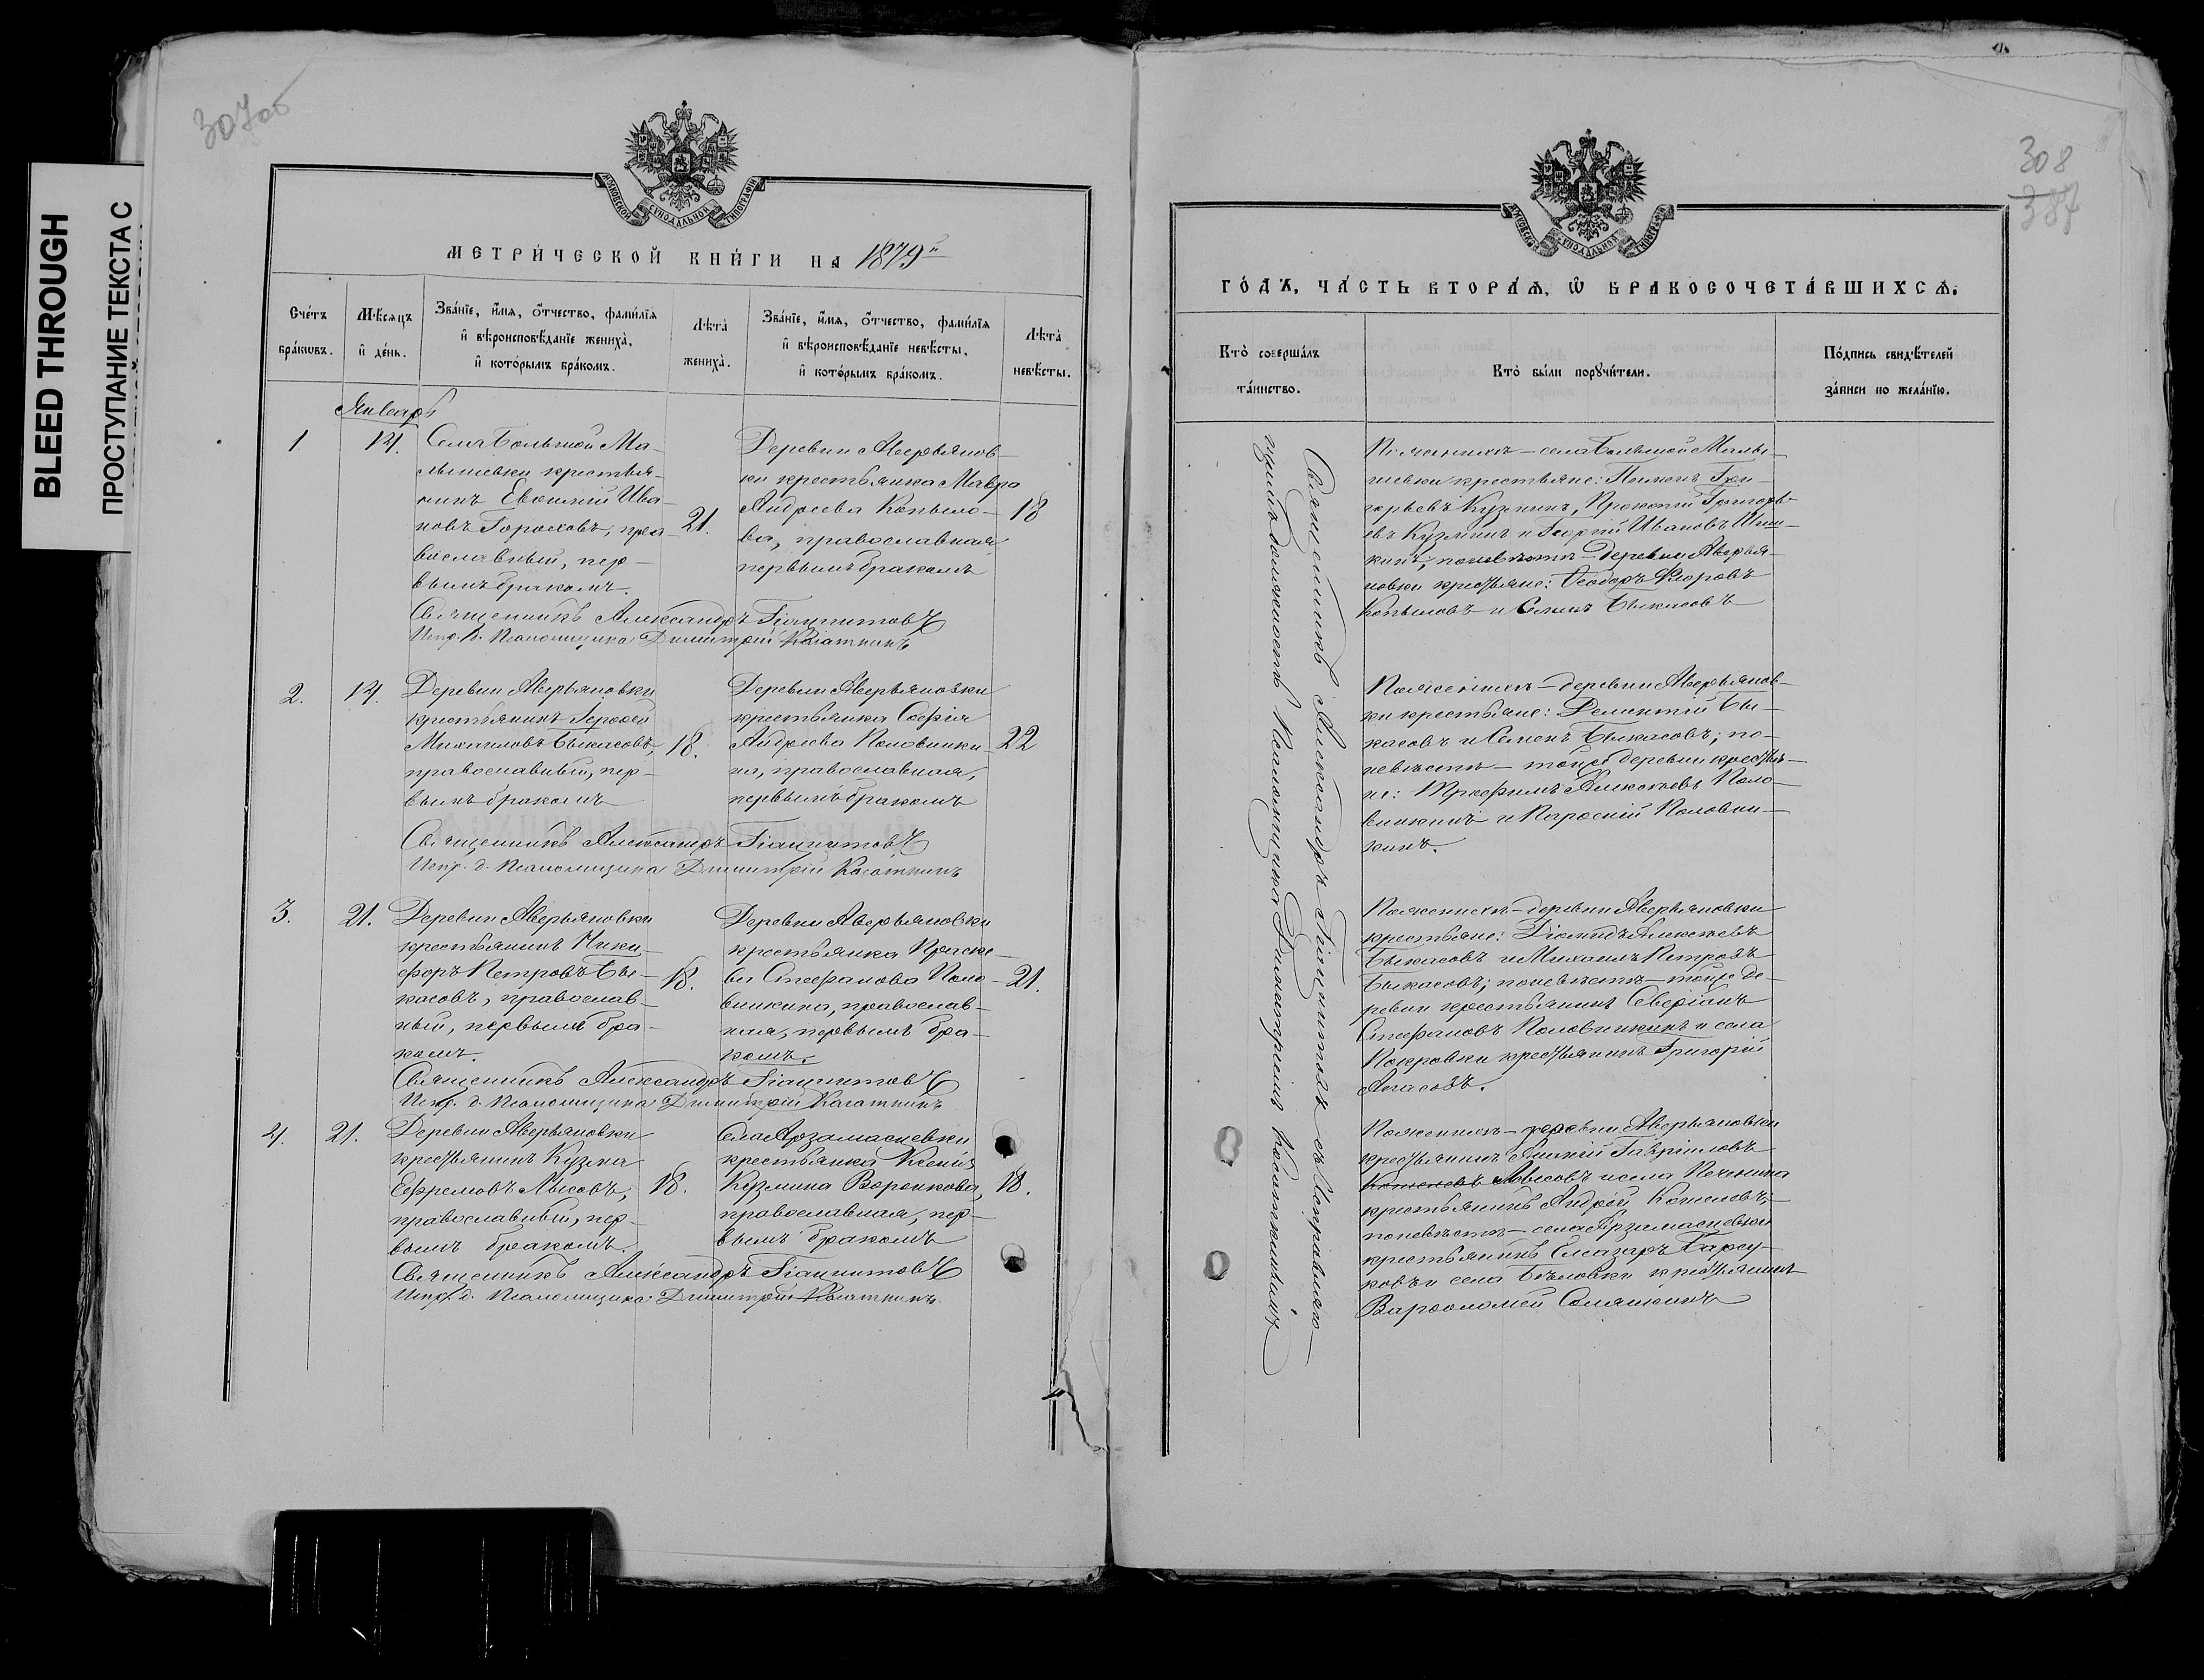 BLEED THROUGH
ПРОСТУПАНИЕ ТЕКСТА С
307об
МЕТРИ́ЧЕСКОЙ КНИ́ГИ НА 1879й
Сче́тъ бра́кωвъ.
Мѣ́сяцъ и҆ де́нь.
Зва́нїе, и҆́мя, ѻ҆́тчество, фами́лїя и҆ вѣроисповѣ́данїе жениха̀, и҆ кото́рымъ бра́комъ.
Лѣта̀ жениха̀.
Зва́нїе, и҆́мя, ѻ҆́тчество, фами́лїя и҆ вѣроисповѣ́данїе невѣ́сты, и҆ кото́рымъ бра́комъ.
Лѣта̀ невѣ́сты.
Январь
1 14.
Села Большой Ма-
лышевки крестья-
нинъ Евѳимій Ива-
новъ Гороховъ, пра-
вославный, пер-
вымъ бракомъ.
21.
Деревни Аверьянов-
ки крестьянка Мавра
Андреева Копыло-
ва, православная
первымъ бракомъ
18
Священникъ Александръ Гіацинтовъ
Испр. д. Псаломщика Димитрій Косаткинъ
2. 14.
Деревни Аверьяновки
крестьянинъ Іероѳей
Михаиловъ Быкасовъ,
православный, пер-
вымъ бракомъ
18.
Деревни Аверьяновки
крестьянка Софія
Андреева Половинки-
на, православная,
первымъ бракомъ
22
Священникъ Александръ Гіацинтовъ
Испр. д. Псаломщика Димитрій Косаткинъ
3. 21.
Деревни Аверьяновки
крестьянинъ Ники-
форъ Петровъ Бы-
касовъ, православ-
ный, первымъ бра-
комъ.
18.
Деревни Аверьяновки
крестьянка Праске-
ва Стефанова Поло-
винкина, православ-
ная, первымъ бра-
комъ.
21.
Священникъ Александръ Гіацинтовъ
Испр. д. Псаломщика Димитрій Косаткинъ
4. 21.
Деревни Аверьяновки
крестьянинъ Кузма
Ефремовъ Лысовъ,
православный, пер-
вымъ бракомъ.
18.
Села Арзамасцевки
крестьянка Ксенія
Кузмина Воронкова,
православная, пер-
вымъ бракомъ
18.
Священникъ Александръ Гіацинтовъ
Испр. д. Псаломщика Димитрій Косаткинъ
308
387
ГО́ДЪ, ЧА́СТЬ ВТОРА́Я, Ѡ҆ БРАКОСОЧЕТА́ВШИХСЯ.
Кто̀ соверша́лъ та́инство.
Кто̀ бы́ли порꙋчи́тели.
По́дпись свидѣ́телей за́писи по жела́нїю.
Священникъ Александръ Гіацинтовъ съ исправляю-
щимъ должность Псаломщика Димитріемъ Косаткинымъ
По женихѣ – села Большой Малы-
шевки крестьяне: Пименъ Гри-
горьевъ Кузминъ, Прокопій Григорь-
евъ Кузминъ и Георгій Ивановъ Шиш-
кинъ; по невѣстѣ – деревни Аверья-
новки крестьяне: Ѳеодоръ Ѳедоровъ
Копыловъ и Семенъ Быкасовъ
По женихѣ – деревни Аверьянов-
ки крестьяне: Дементій Бы-
касовъ и Семенъ Быкасовъ; по-
невѣстѣ – той же деревни крестья-
не: Трофимъ Алексѣевъ Поло-
винкинъ и Парфеній Половин-
кинъ.
По женихѣ – деревни Аверьяновки
крестьяне: Діомидъ Алексѣевъ
Быкасовъ и Михаилъ Петровъ
Быкасовъ; по невѣстѣ – той же де-
ревни крестьянинъ Северіанъ
Стефановъ Половинкинъ и села
Покровки крестьянинъ Григорій
По женихѣ – деревни Аверьяновки
крестьянинъ Гавріиловъ
Лысовъ и села
крестьянинъ Андрей Кошелевъ;
по невѣстѣ – села Арзамасцевки
крестьянинъ Елеазаръ Барсу-
ковъ и села Бѣловки крестьянинъ
Варѳоломей Солянкинъ